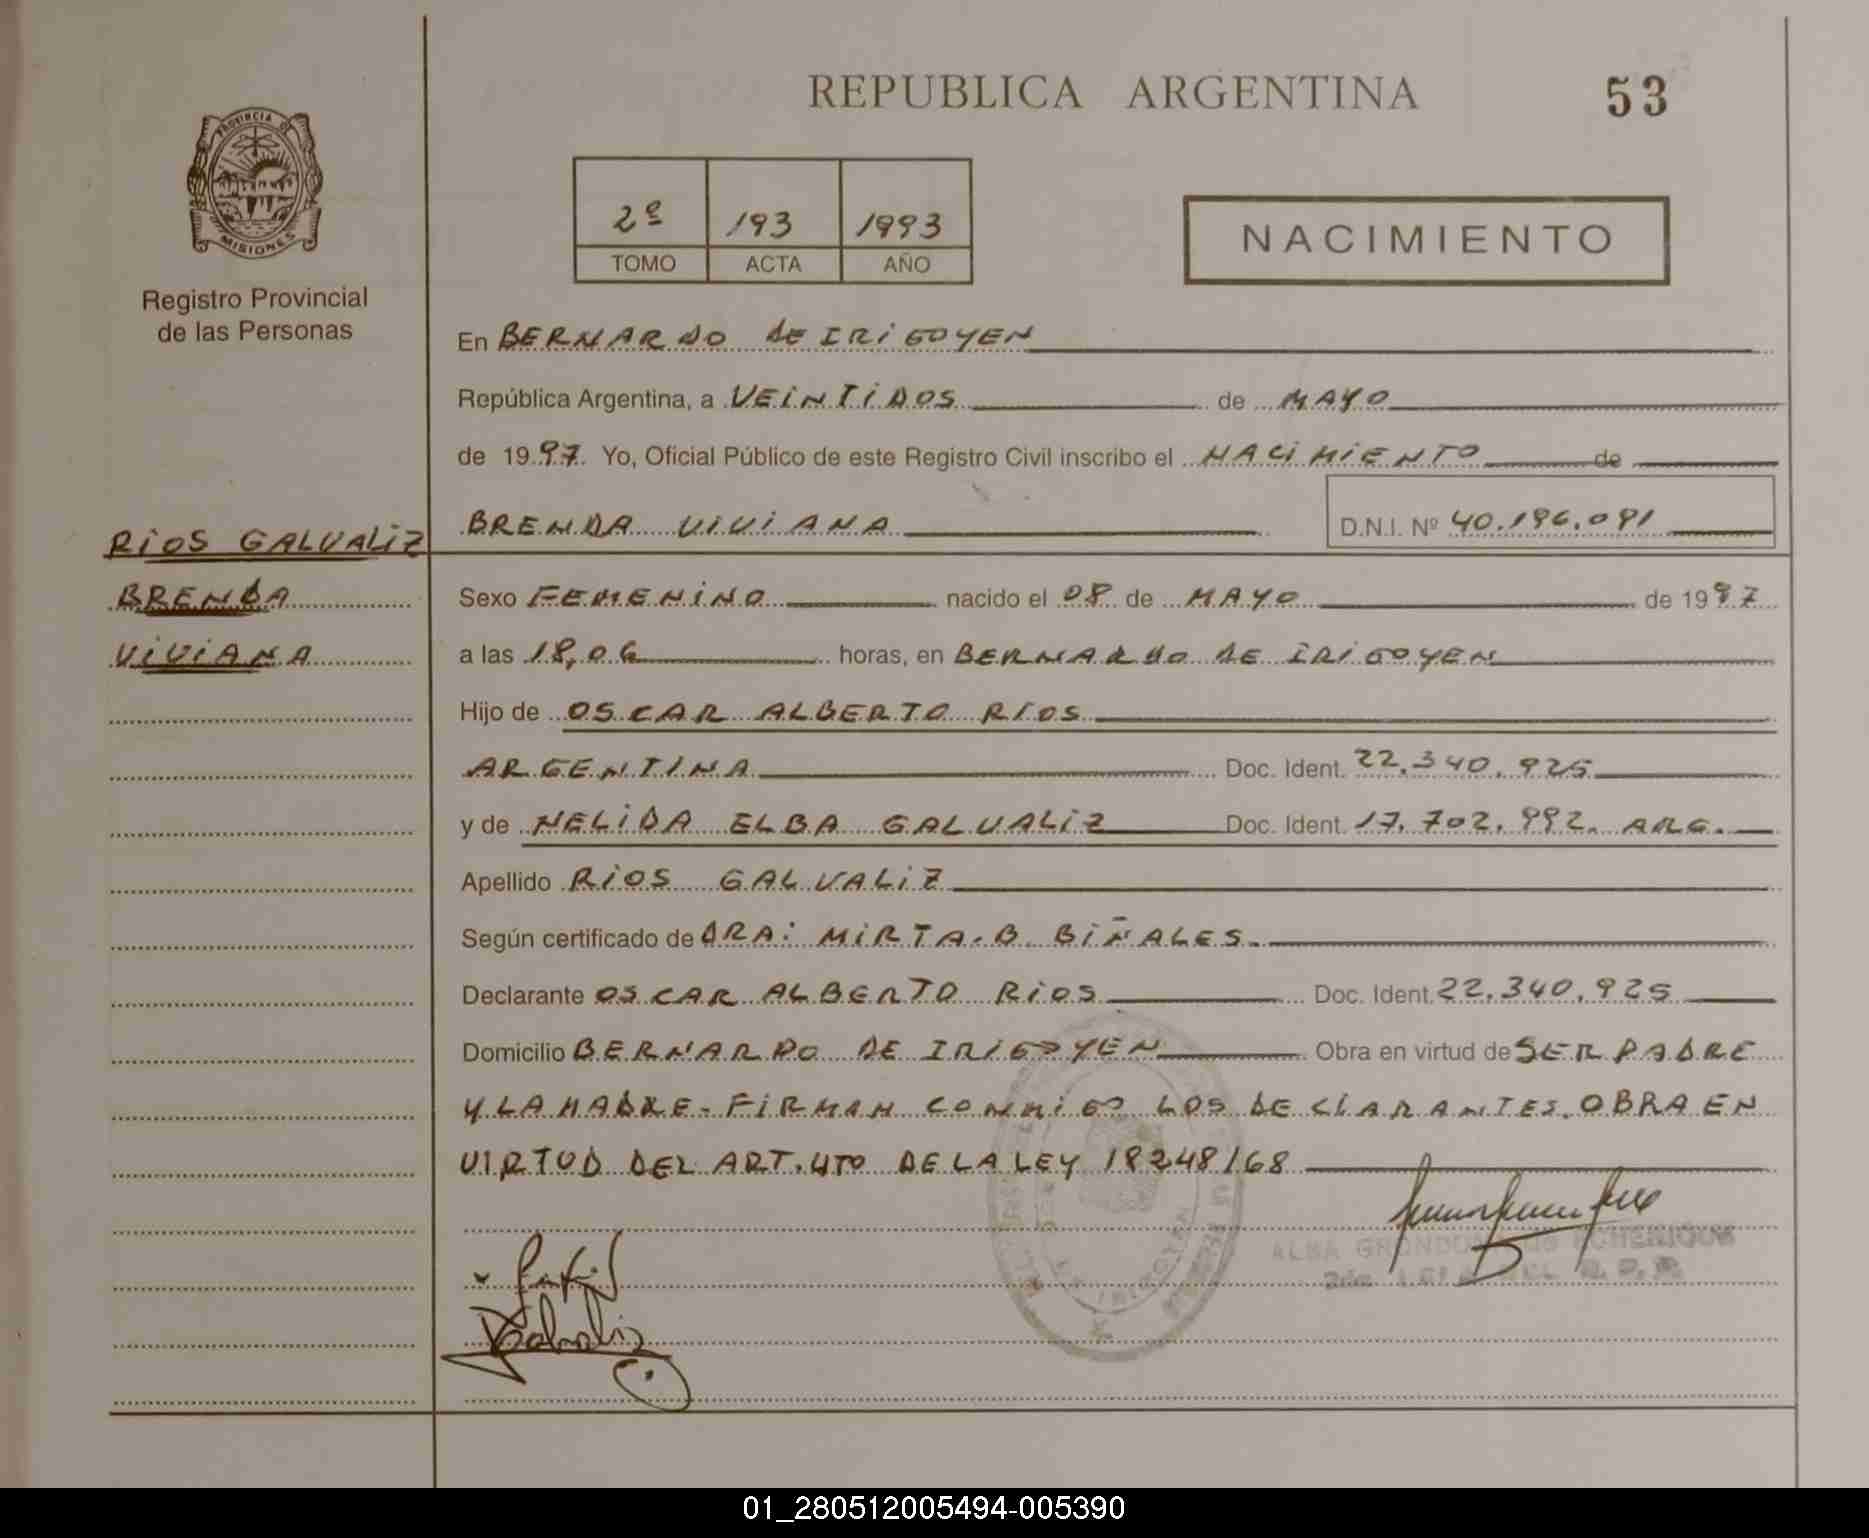 REPUBLICA ARGENTINA
53
PROVINCIA DE
MISIONES
Registro Provincial
de las Personas
2º 193 1993
TOMO ACTA AÑO
NACIMIENTO
En BERNARDO DE IRIGOYEN
República Argentina, a VEINTIDOS de MAYO
de 1997 Yo, Oficial Público de este Registro Civil inscribo el NACIMIENTO de
BRENDA VIVIANA D.N.I. Nº 40.196.091
RIOS GALVALIZ
BRENDA
VIVIANA
Sexo FEMENINO nacido el 08 de MAYO de 1997
a las 18,06 horas, en BERNARDO DE IRIGOYEN
Hijo de OSCAR ALBERTO RIOS
ARGENTINA Doc. Ident. 22.340.925
y de NELIDA ELBA GALVALIZ Doc. Ident. 17.702.992. ARG.
Apellido RIOS GALVALIZ
Según certificado de DRA: MIRTA.B. BIÑALES.
Declarante OSCAR ALBERTO RIOS Doc. Ident. 22.340.925
Domicilio BERNARDO DE IRIGOYEN Obra en virtud de SER PADRE
Y LA MADRE - FIRMAN CONMIGO LOS DECLARANTES. OBRA EN
VIRTUD DEL ART. 4TO DE LA LEY 18248/68
ALBA
01_280512005494-005390